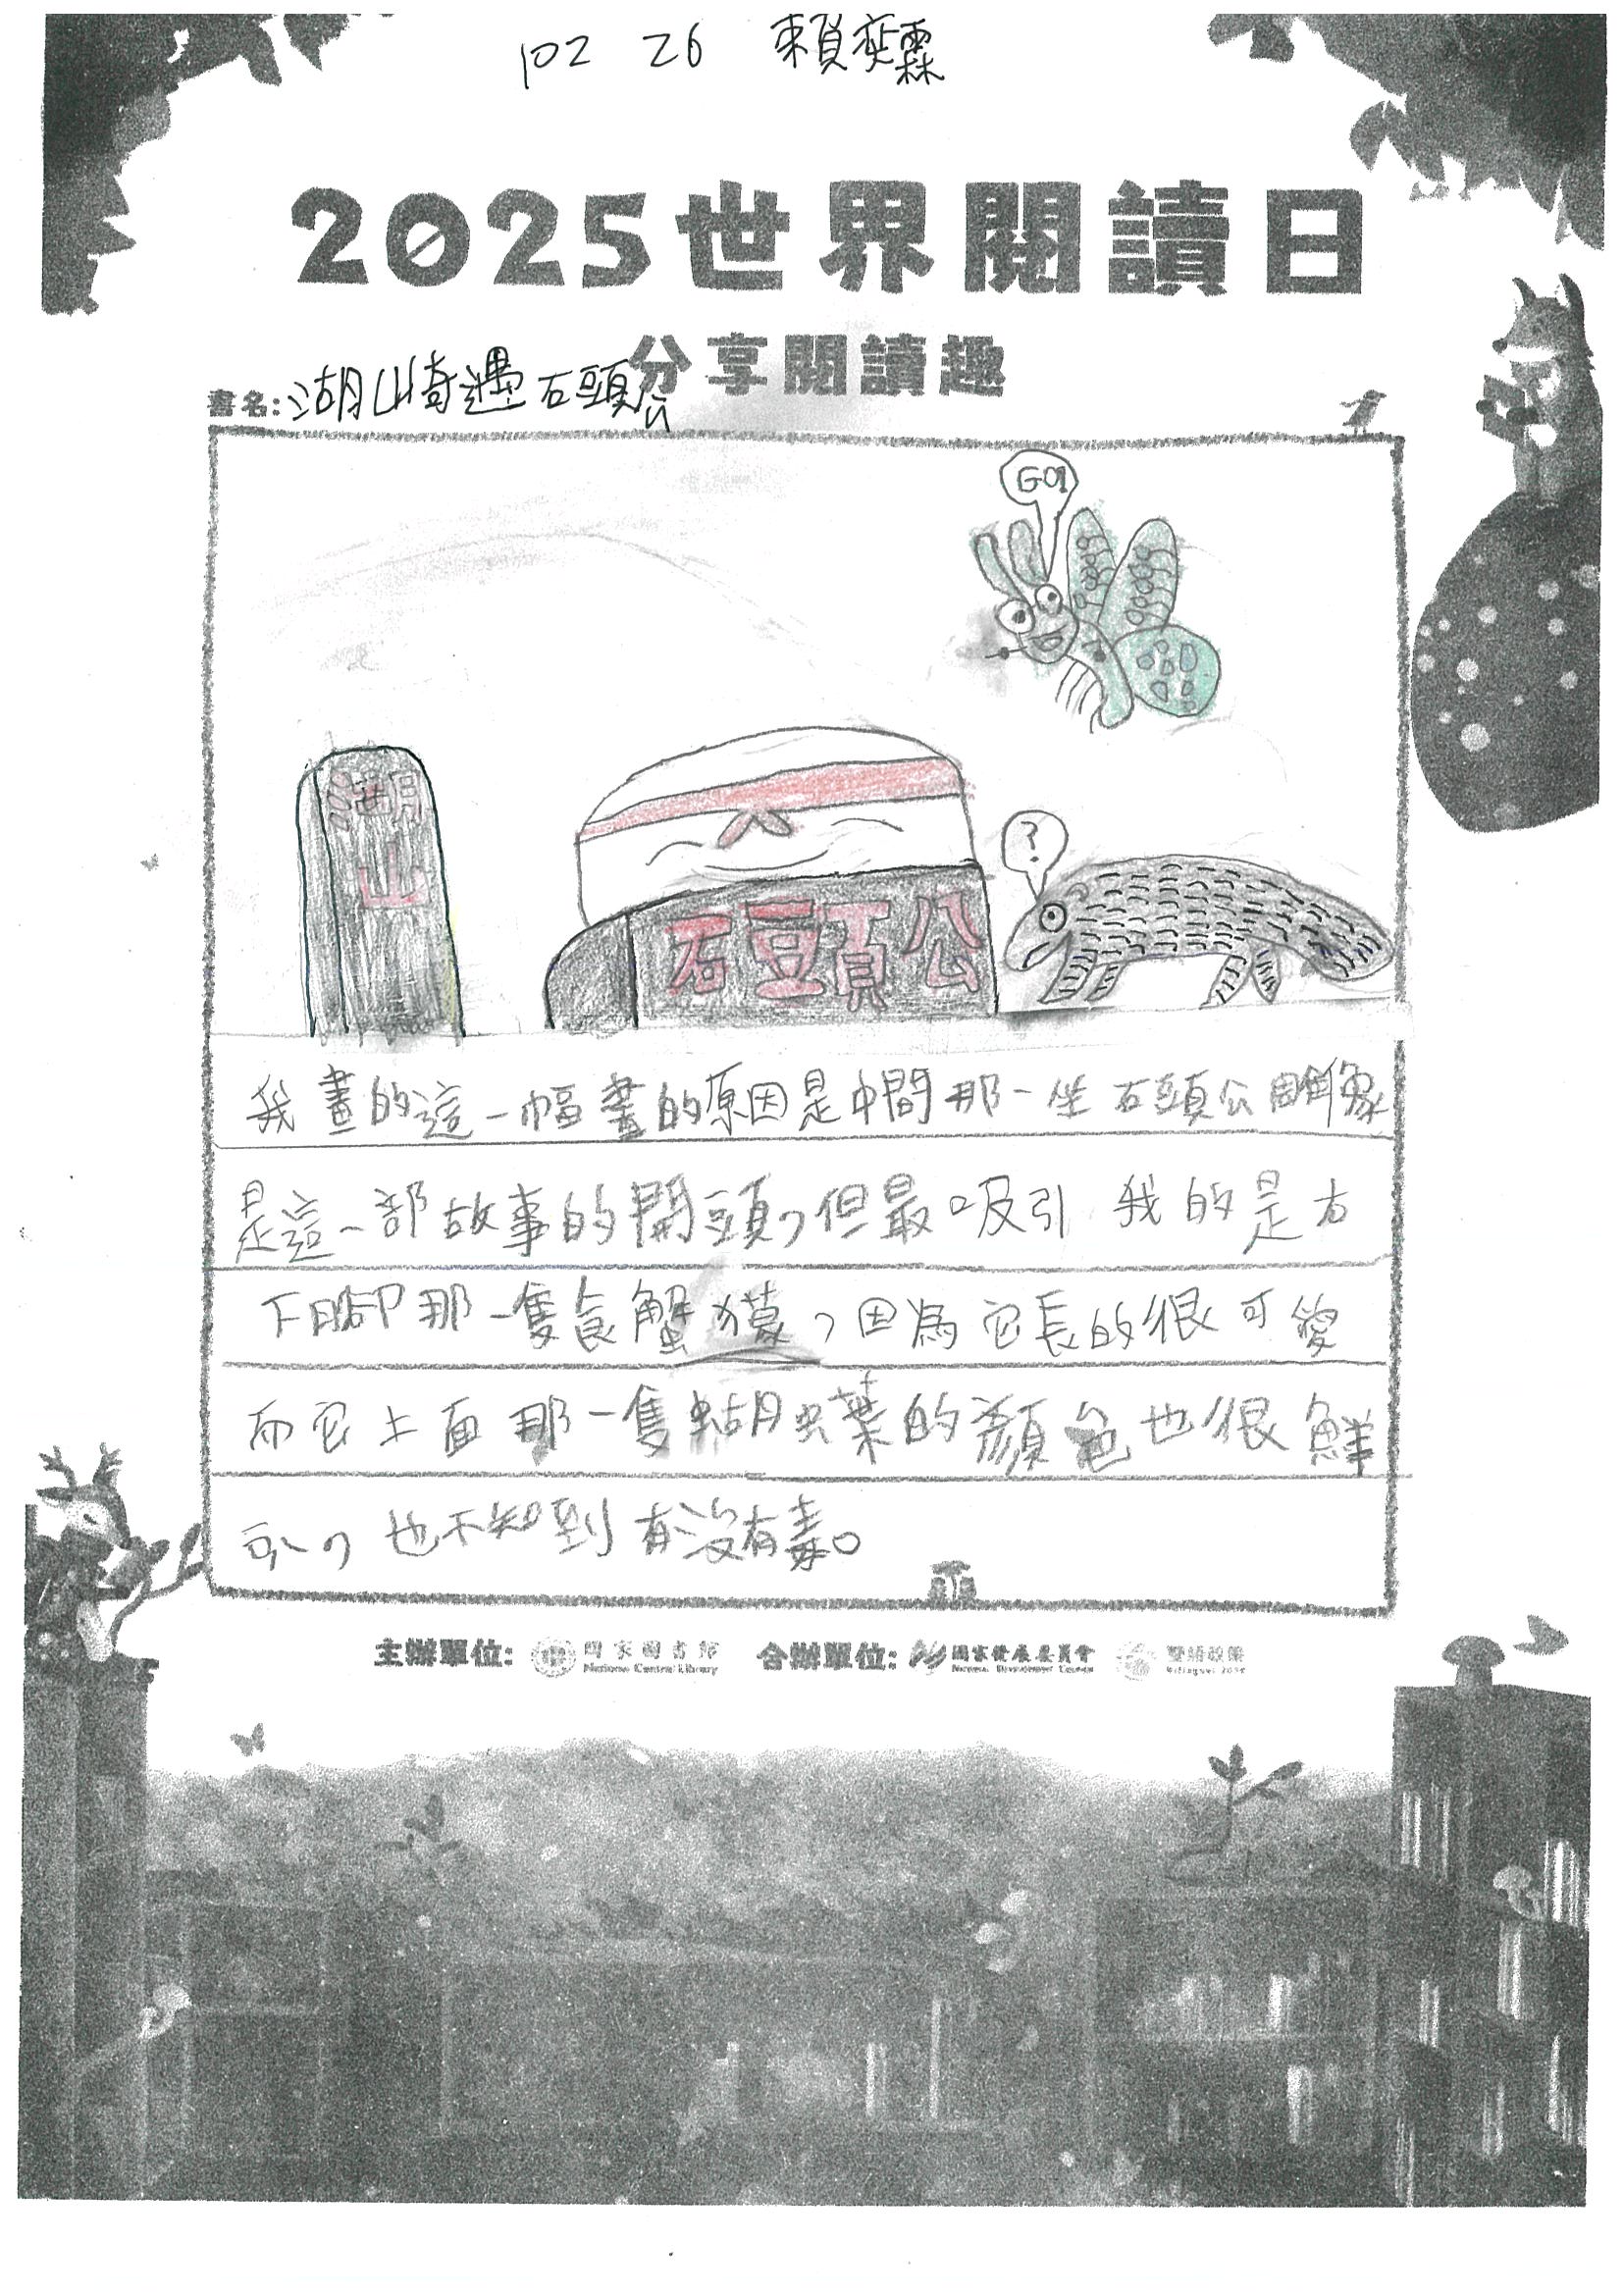 102 26 賴奕霖
2025世界閱讀日
分享閱讀趣
書名:湖山崎遇石頭公
GO!
湖山
?
石頭公
我畫的這一幅畫的原因是中間那一坐石頭公雕像
是這一部故事的開頭,但最吸引我的是右
下腳那一隻食蟹獴,因為它長的很可愛
而它上面那一隻蝴蝶的顏色也很鮮
,也不知到有沒有毒。
主辦單位: 國家圖書館 National Central Library 合辦單位: 國家發展委員會 National Development Council 雙語政策